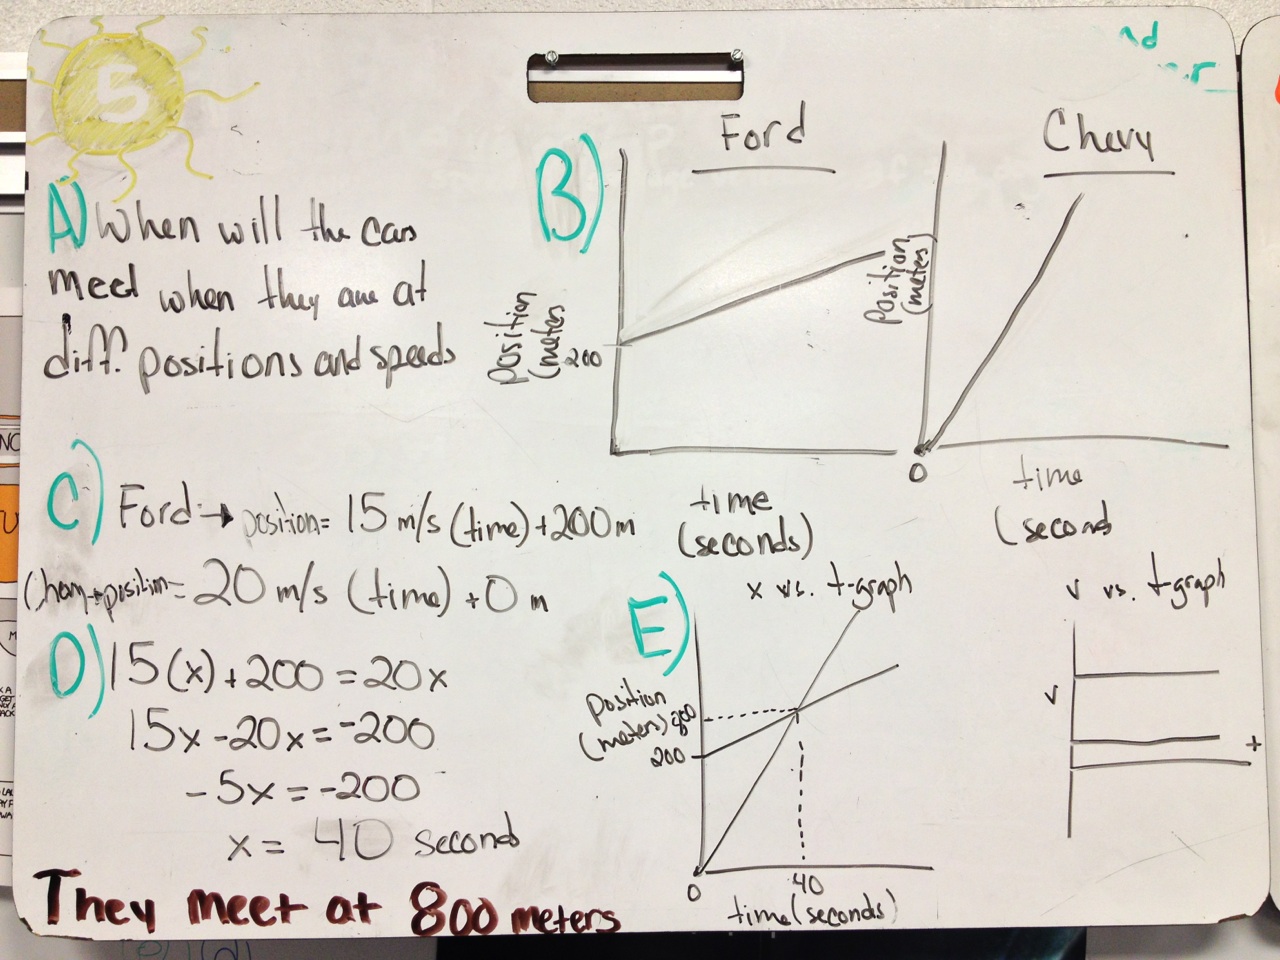 5
A) When will the cars
meet when they are at
diff. positions and speeds
B)
Ford
Position
(meters
200
time
(seconds)
Chevy
Position
(meters)
0
time
(second
C) Ford → position = 15 m/s (time) + 200 m
position = 20 m/s (time) + 0 m
D) 15(x) + 200 = 20x
15x - 20x = -200
-5x = -200
x = 40 second
They meet at 800 meters
E)
x vs. t-graph
Position
(meters)
800
200
0
40
time (seconds)
v vs. t-graph
v
t
nd